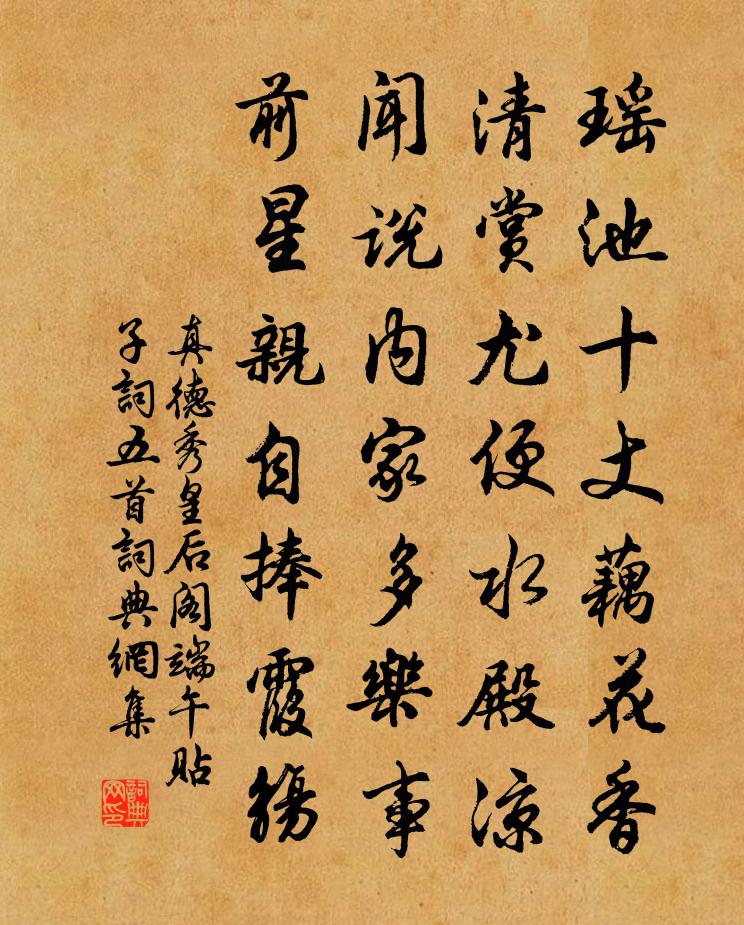 瑶池十丈藕花香
清賞尤便水殿涼
闻说内家多樂事
前星親自捧霞觴
真德秀皇后阁端午贴
子詞五首詞典網集
詞典
网印